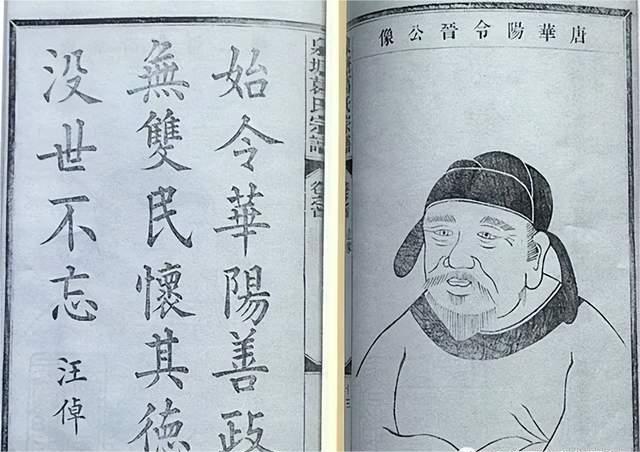 唐華陽令晉公像
泉塘葛氏宗譜
始令華陽善政
無雙民懷其德
没世不忘
汪倬